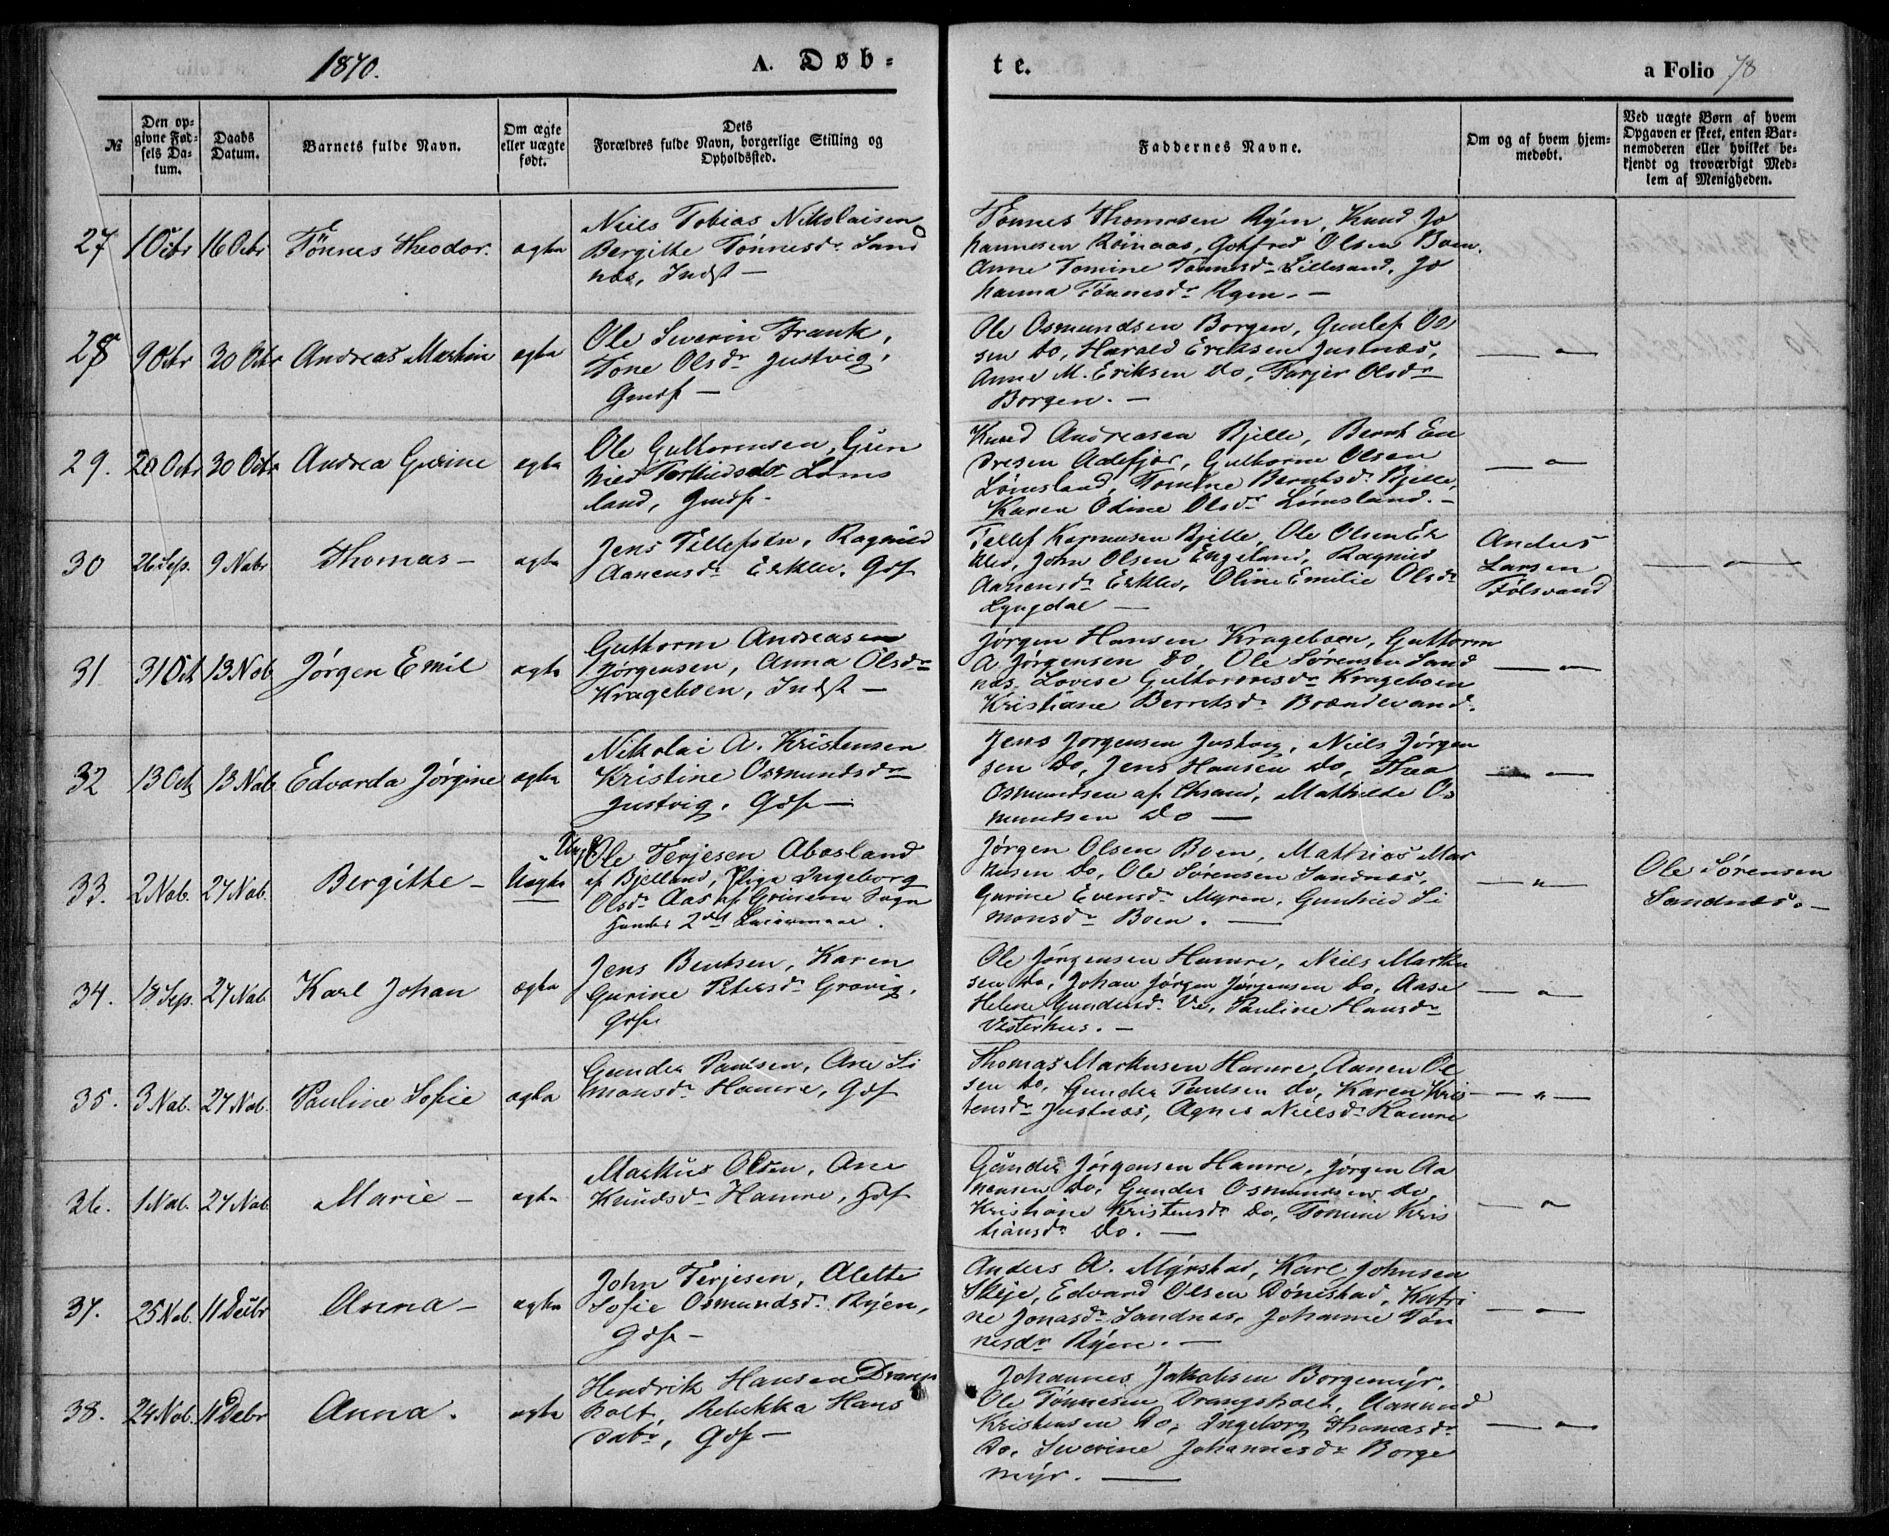 1870.
A. Døb-
te.
a Folio 78
№
Den op-
givne Fød-
sels Da-
tum.
Daabs
Datum.
Barnets fulde Navn.
Om ægte
eller uægte
født.
Dets
Forældres fulde Navn, borgerlige Stilling og
Opholdssted.
Faddernes Navne.
Om og af hvem hjem-
medøbt.
Ved uægte Børn af hvem
Opgaven er skeet, enten Bar-
nemoderen eller hvilket be-
kjendt og troværdigt Med-
lem af Menigheden.
27 1 Octbr 16 Octbr Tönnes Theodor. ægte
Niels Tobias Nikolaisen
Bergitte Tönnesdr Sand
næs, Indst —
Tönnes Thomesen Ryen, Knud Jo
hannesen Röinaas, Gotfred Olsen Boen.
Anne Tomine Tönnesdr Lillesand, Jo
hanna Tönnesdr Ryen. —
28 9 Octbr 30 Octbr Andreas Martin ægte
Ole Severin Frank,
Tone Olsdr Justvig,
Gmdf —
Ole Osmundsen Borgen, Gunlef Ol
sen Do, Harald Eriksen Justnæs,
Anne M. Eriksen Do, Tarjer Olsdr
Borgen. —
— " —
29. 20 Octbr 30 Octbr Andrea Gurine ægte
Ole Guttormsen, Gun
nild Torkildsdr Löms
land, Gmdf —
Knud Andreasen Bjelle, Bernt En
dresen Adefjor, Guttorm Olsen
Lömsland, Tomine Berntsdr Bjelle,
Karen Odine Olsdr Lömsland. —
— " —
30 26 Sep. 9 Nobr Thomas — ægte
Jens Tellefsen, Ragnild
Aanensdr Erklev, Gdf
Tellef Rasmusen Bjelle, Ole Olsen Er
klev, John Olsen Engeland, Ragnild
Aanensdr Erklev, Oline Emilie Olsdr
Lyngdal —
Anders
Larsen
Fölsvand
— " —
31 31 Oct 13 Nob. Jörgen Emil ægte
Guttorm Andreasen
Jörgensen, Anna Olsdr
Krageboen, Indst —
Jörgen Hansen Krageboen, Guttorm
A Jörgensen Do, Ole Sörensen Sand
næs, Lovise Guttormsdr Krageboen
Kristiane Berntsdr Brændevand.
— " —
32 13 Oct 13 Nob. Edvarda Jörgine ægte
Nikolai A. Kristensen
Kristine Osmundsdr
Justvig. Gdf —
Jens Jörgensen Justvig, Niels Jörgen
sen Do, Jens Hansen Do, Thea
Osmundsen af Chrsand, Mathilde Os
mundsen Do —
— " —
33. 2 Nob. 27 Nob. Bergithe — Uægte
Ungk Ole Terjesen Abosland
af Bjelland, Pige Ingeborg
Olsdr Aas af Grinem Sogn
Hendes 2det Leiermaal.
Jörgen Olsen Boen, Mathias Mar
kusen Do, Ole Sörensen Sandnæs,
Gurine Evensdr Myren, Gunhild Si
monsdr Boen. —
— " —
Ole Sörensen
Sandnæs. —
34. 18 Sep. 27 Nob. Karl Johan ægte
Jens Bentsen, Karen
Gurine Petersdr Grovig,
Gdf.
Ole Jörgensen Hamre, Niels Marku
sen Do, Johan Jörgen Jörgensen Do, Aase
Helene Gundersdr Ve, Pauline Hansdr
Vesterhus. —
— " —
35. 3 Nob. 27 Nob. Pauline Sofie ægte
Gunder Paulsen, Ane Si
monsdr Hamre, Gdf
Thomas Markusen Hamre, Aanen Ol
sen Do, Gunder Paulsen Do, Karen Kris
tensdr Justnæs, Agnes Nielsdr Hamre
— " —
36. 1 Nob. 27 Nob. Marie — ægte
Markus Olsen, Ane
Knudsdr Hamre, Gdf
Gunder Jörgensen Hamre, Jörgen Aa
nensen Do, Gunder Osmundsen Do,
Kristiane Kristensdr Do, Tomine Kris
tiansdr Do. —
— " —
37. 25 Nob. 11 Decbr Anna — ægte
John Terjesen, Alette
Sofie Osmundsdr Ryen,
Gdf —
Anders A. Myrstad, Karl Johnsen
Skeje, Edvard Olsen Dönestad, Katri
ne Jonasdr Sandnæs, Johanne Tön
nesdr Ryen. —
— " —
38. 24 Nob. 11 Decbr Anna. ægte
Hendrik Hansen Drangs
holt, Rebekka Hans
datr, Gdf —
Johannes Jakobsen Borgemyr,
Ole Tönnesen Drangsholt, Aamund
Kristensen Do, Ingeborg Thomasdr
Do, Severine Johannesdr Borge
myr. —
— " —